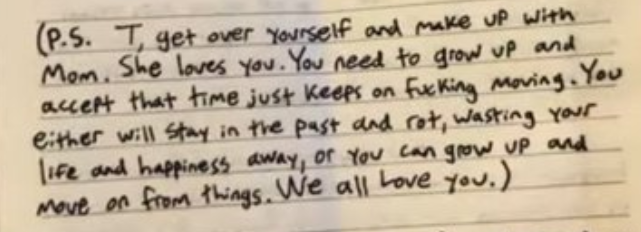 (P.S. T, get over yourself and make up with
Mom. She loves you. You need to grow up and
accept that time just keeps on fucking moving. You
either will stay in the past and rot, wasting your
life and happiness away, or you can grow up and
move on from things. We all love you.)